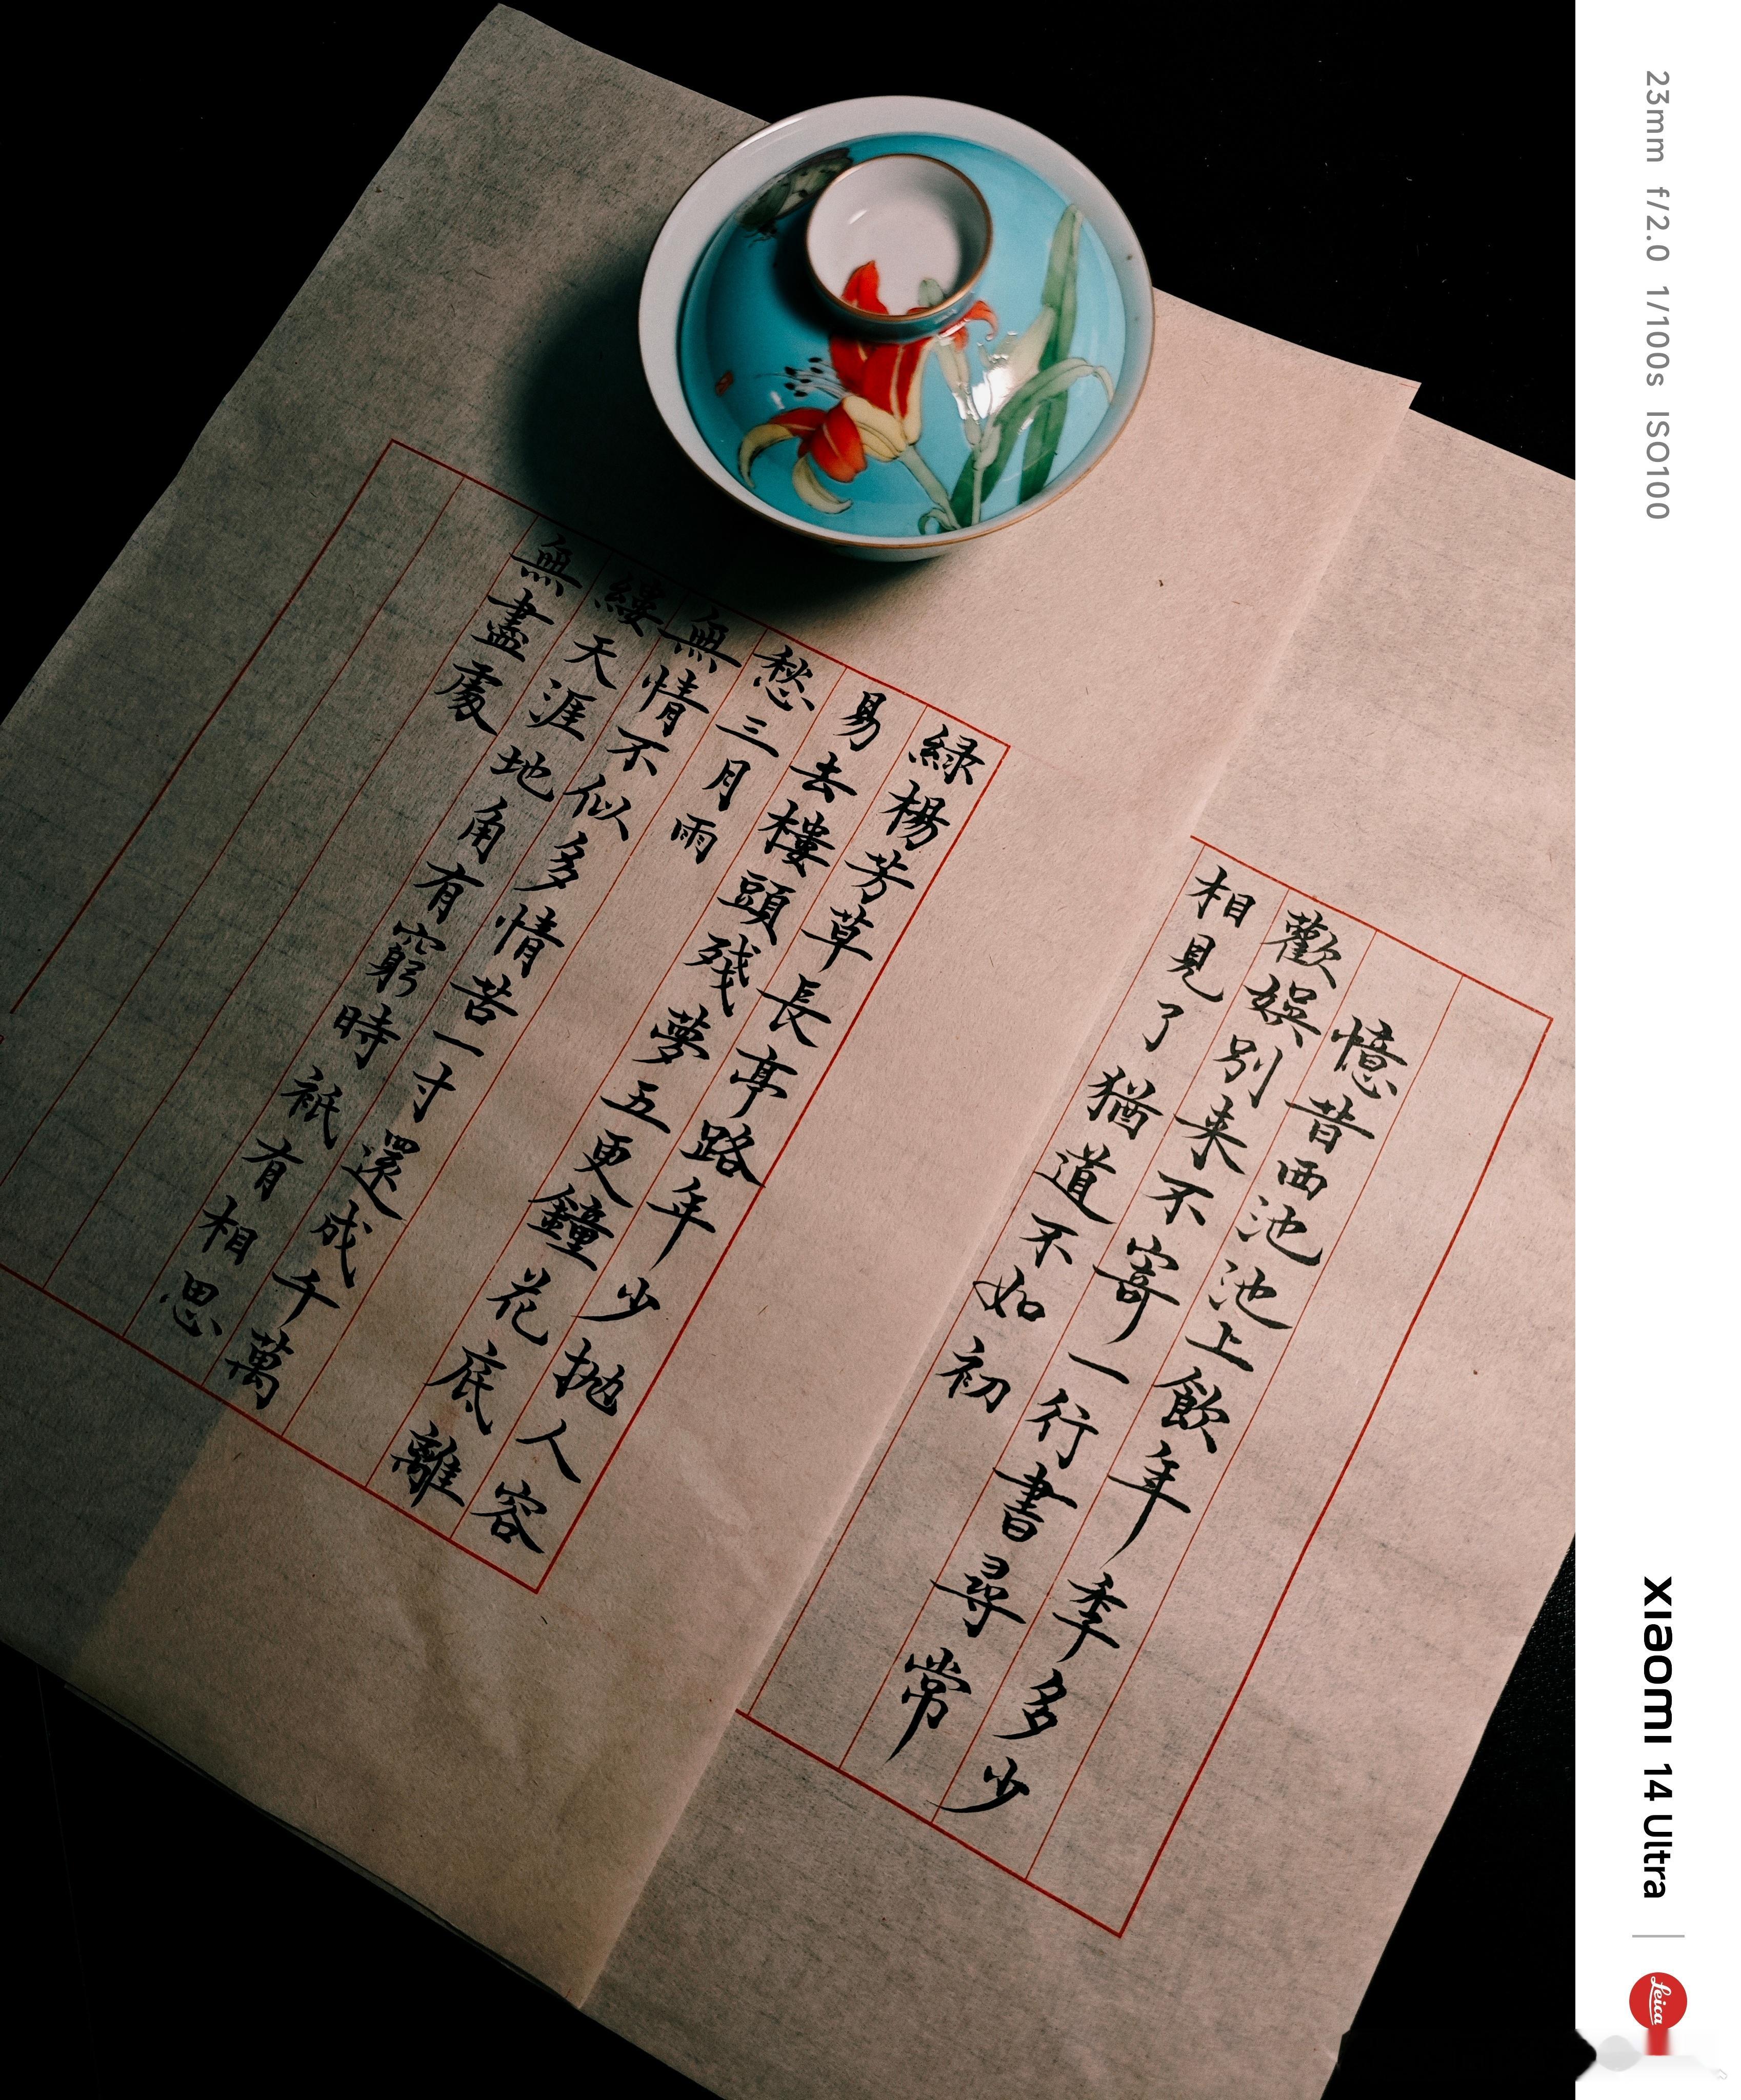 憶昔西池池上飲年季多少
歡娯別来不寄一行書尋常
相見了猶道不如初
緑楊芳草長亭路年少抛人容
易去樓頭殘夢五更鐘花底離
愁三月雨
無情不似多情苦一寸還成千萬
縷天涯地角有窮時祇有相思
無盡處
23mm f/2.0 1/100s ISO100
xiaomi 14 Ultra
Leica